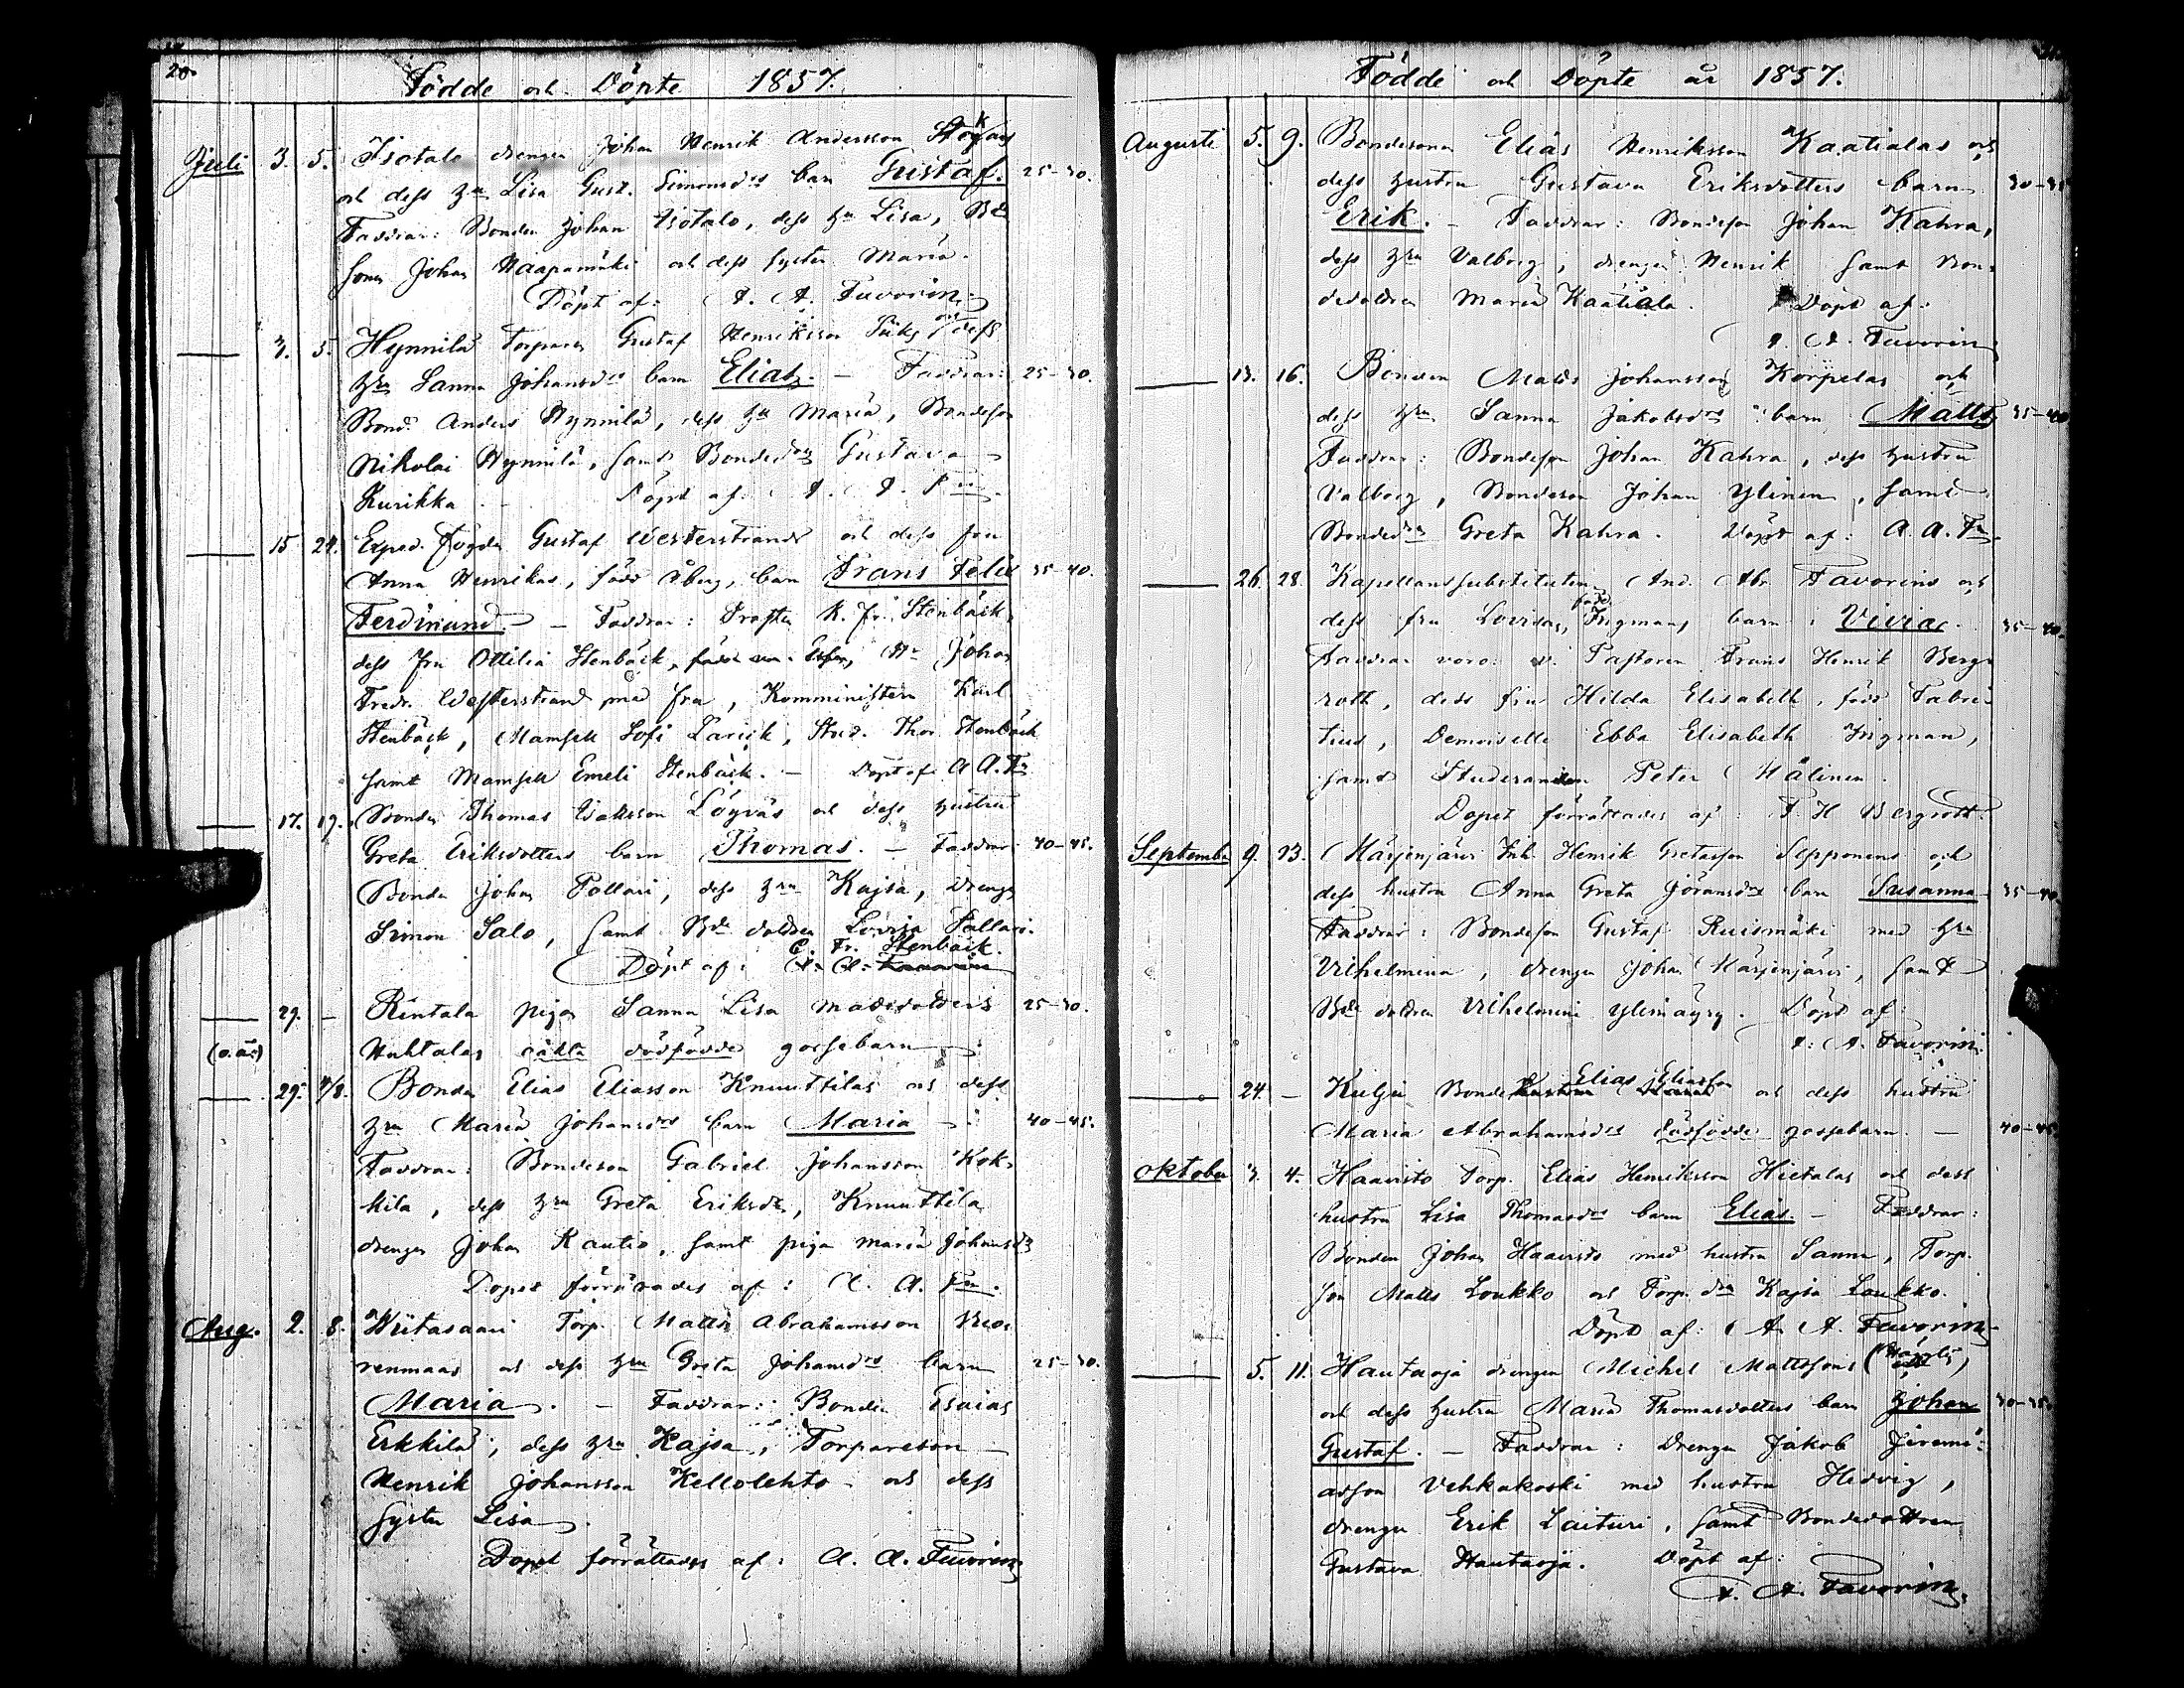 20.
Födde och Döpte 1857.
Juli 3. 5. Isotalo drengen Johan Henrik Andersson
och dess hu Lisa Gust. Simonsdrs barn Gustaf. 25-30.
Faddrar: Bonden Johan Isotalo, dess hu Lisa, Bde
sonen Johan Haapamäki och dess syster Maria.
Döpt af: A. A. Favorin
3. 5. Hynnilä Torparen Gustaf Henriksson och dess
hru Sanna Johansdrs barn Elias. - Faddrar: 25-30.
Bond. Anders Hynnilä, dess hu Maria, Bondeson
Nikolai Hynnilä, samt Bondedrn Gustava
Kurikka. - Döpt af: A. A. Fn.
15 24. Exped. Fogden Gustaf Westerstrands och dess fru
Anna Henrikas, född Åberg, barn Frans Felix 35-40.
Ferdinand. - Faddrar: Prosten K. Fr. Stenbäck,
dess fru Ottilia Stenbäck, Hr Johan
Fredr. Westerstrand med fru, Komministern Karl
Stenbäck, Mamsell Sofi, Stud. Thor Stenbäck
samt Mamsell Emeli Stenbäck. - Döpt af A. A. Fn
17. 19. Bonden Thomas Isaksson Löyväs och dess hustru
Greta Eriksdotters barn Thomas. - Faddrar: 40-45.
Bonden Johan Pollari, dess hru Kajsa, Drengen
Simon Salo, samt Bde dottren Lovisa Pollari.
C. Fr. Stenbäck.
Döpt af: A. A. Favorin
29. - Rintala pigan Sanna Lisa Mattsdotters 25-30.
(o.äc) Huhtalas oäkta dödfödde gossebarn
29. 4/8. Bonden Elias Eliasson Knuuttilas och dess
hru Maria Johansdrs barn Maria - 40-45.
Faddrar: Bondeson Gabriel Johansson Kok-
kila, dess hru Greta Eriksdr, Knuuttila
drengen Johan Rautio, samt pigan Maria Johansdr
Dopet förrättades af: A. A. Fn.
Aug. 2. 8. Wiitasaari Torp. Matts Abrahamsson Vuo-
renmaas och dess hru Greta Johansdrs barn 25-30.
Maria. - Faddrar: Bonden Esaias
Erkkilä, dess hru Kajsa, Torpareson
Henrik Johansson Kellolehto och dess
syster Lisa.
Dopet förrättades af: A. A. Favorin
Födde och Döpte år 1857.
Augusti 5. 9. Bondesonen Elias Henriksson Kaatialas och
dess hustru Gustava Eriksdotters barn 30-35
Erik. - Faddrar: Bondeson Johan Kahra,
dess hru Valborg, drengen Henrik samt Bon-
dedottren Maria Kaatiala. Döpt af:
A. A. Favorin
13. 16. Bonden Matts Johansson Korpelas och
dess hru Sanna Jakobsdrs barn Matts 35-40
Faddrar: Bondeson Johan Kahra, dess hustru
Valborg, Bondeson Johan Ylinen, samt
Bondedrn Greta Kahra. Döpt af: A. A. Fn
26. 28. Kapellanssubstituten And. Abr. Favorins och
dess fru Lovisas, född Ingman, barn: Vivia. 35-40.
Faddrar voro: v. Pastoren Frans Henrik Berg-
roth, dess fru Hilda Elisabeth, född Fabri-
tius, Demoiselle Ebba Elisabeth Ingman,
samt Studeranden Peter Hålinen.
Dopet förrättades af: F. H Bergroth.
September 9. 13. Märjenjärvi Inh. Henrik Gretasson Sepponens och
dess hustru Anna Greta Göransdrs barn Susanna 35-40
Faddrar: Bondeson Gustaf Ruismäki med hru
Vilhelmina, drengen Johan Märjenjärvi, samt
Bde dottren Vilhelmina Ylimäyry. Döpt af:
A. A. Favorin
24. - Kulju Bonde Elias Eliasson och dess hustru
Maria Abrahamsdrs dödfödde gossebarn - 40-45
Oktober 3. 4. Haavisto Torp. Elias Henriksson Hietalas och dess
hustru Lisa Thomasdrs barn Elias. - Faddrar:
Bonden Johan Haavisto med hustru Sanna, Torp.
son Matts Loukko och Torp. drn Kajsa Loukko.
Döpt af: A. A. Favorin
5. 11. Hautaoja drengen Michel Mattssons
och dess hustru Maria Thomasdotters barn Johan 30-35.
Gustaf. - Faddrar: Drengen Jakob Jeremi-
asson Vehkakoski med hustru Hedvig,
drengen Erik Laituri, samt Bondedottren
Gustava Hautaoja. Döpt af:
A. A. Favorin.